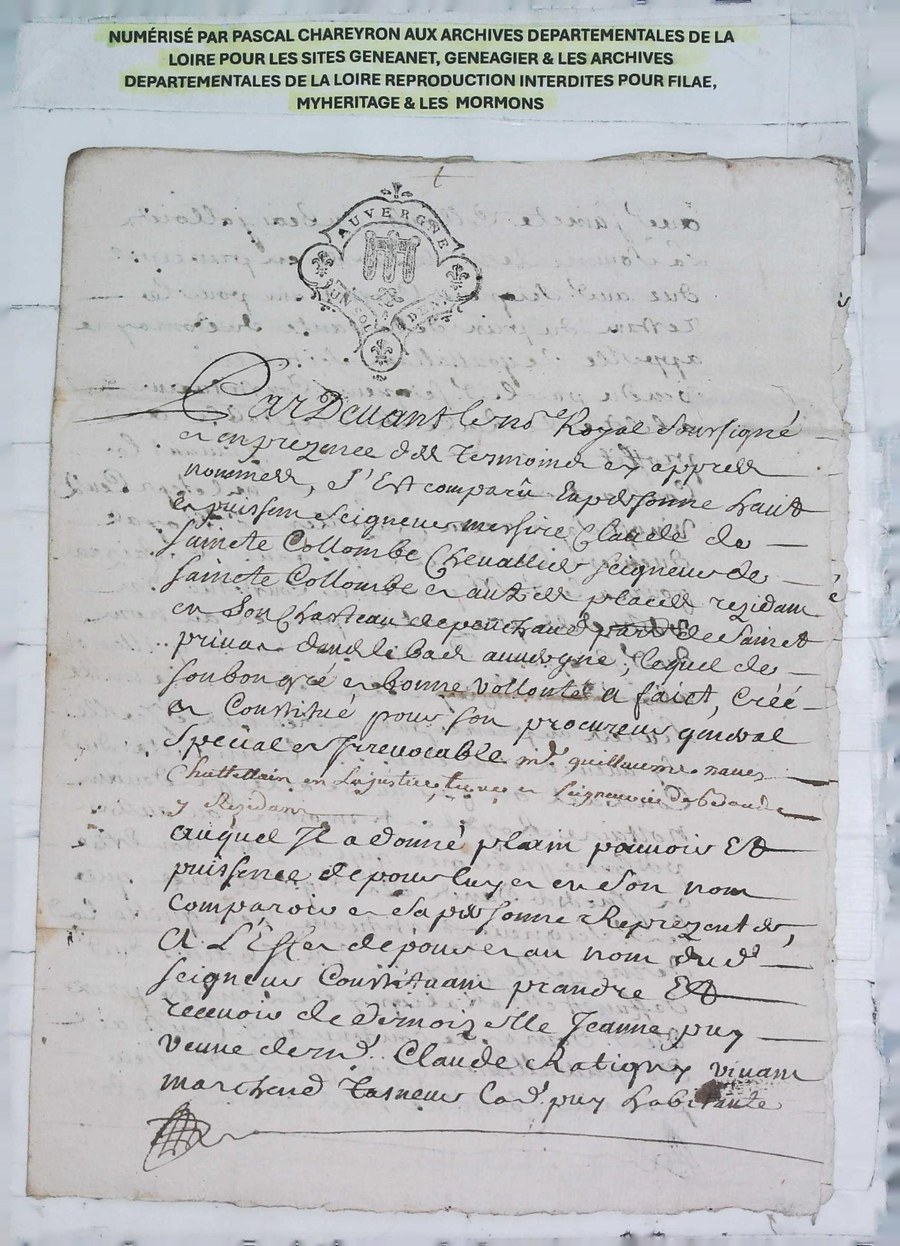 NUMÉRISÉ PAR PASCAL CHAREYRON AUX ARCHIVES DEPARTEMENTALES DE LA
LOIRE POUR LES SITES GENEANET, GENEAGIER & LES ARCHIVES
DEPARTEMENTALES DE LA LOIRE REPRODUCTION INTERDITES POUR FILAE,
MYHERITAGE & LES MORMONS
AUVERGNE
UN SOL
Par Devant le no Royal Soussigné
et en prezence des Tesmoins cy appres
nommes, s'Est comparû En personne haut
et puissan Seigneur messire Claude de
Saincte Collombe Chevallier seigneur de
Saincte Collombe et autres places rezidam
en son Chasteau de de Sainct
privas dud le bas auvergne, lequel de
son bon gré et bonne vollonté a faict, créé
et Constitué pour son procureur general
special et Irrevocable mr. guillaume
Chattellain en La justice, terre et seigneurie de
y Residam
auquel Il a donné plain pouvoir Et
puissence de pour luy et en son nom
comparoir et sa personne Reprezenter,
A L'Effet de pour et au nom dud
seigneur Constituam prandre Et
recevoir de demoizelle Jeanne puy
veuve de mr. Claude Ratigny vivam
marchand Tasneur Lad. puy habitante